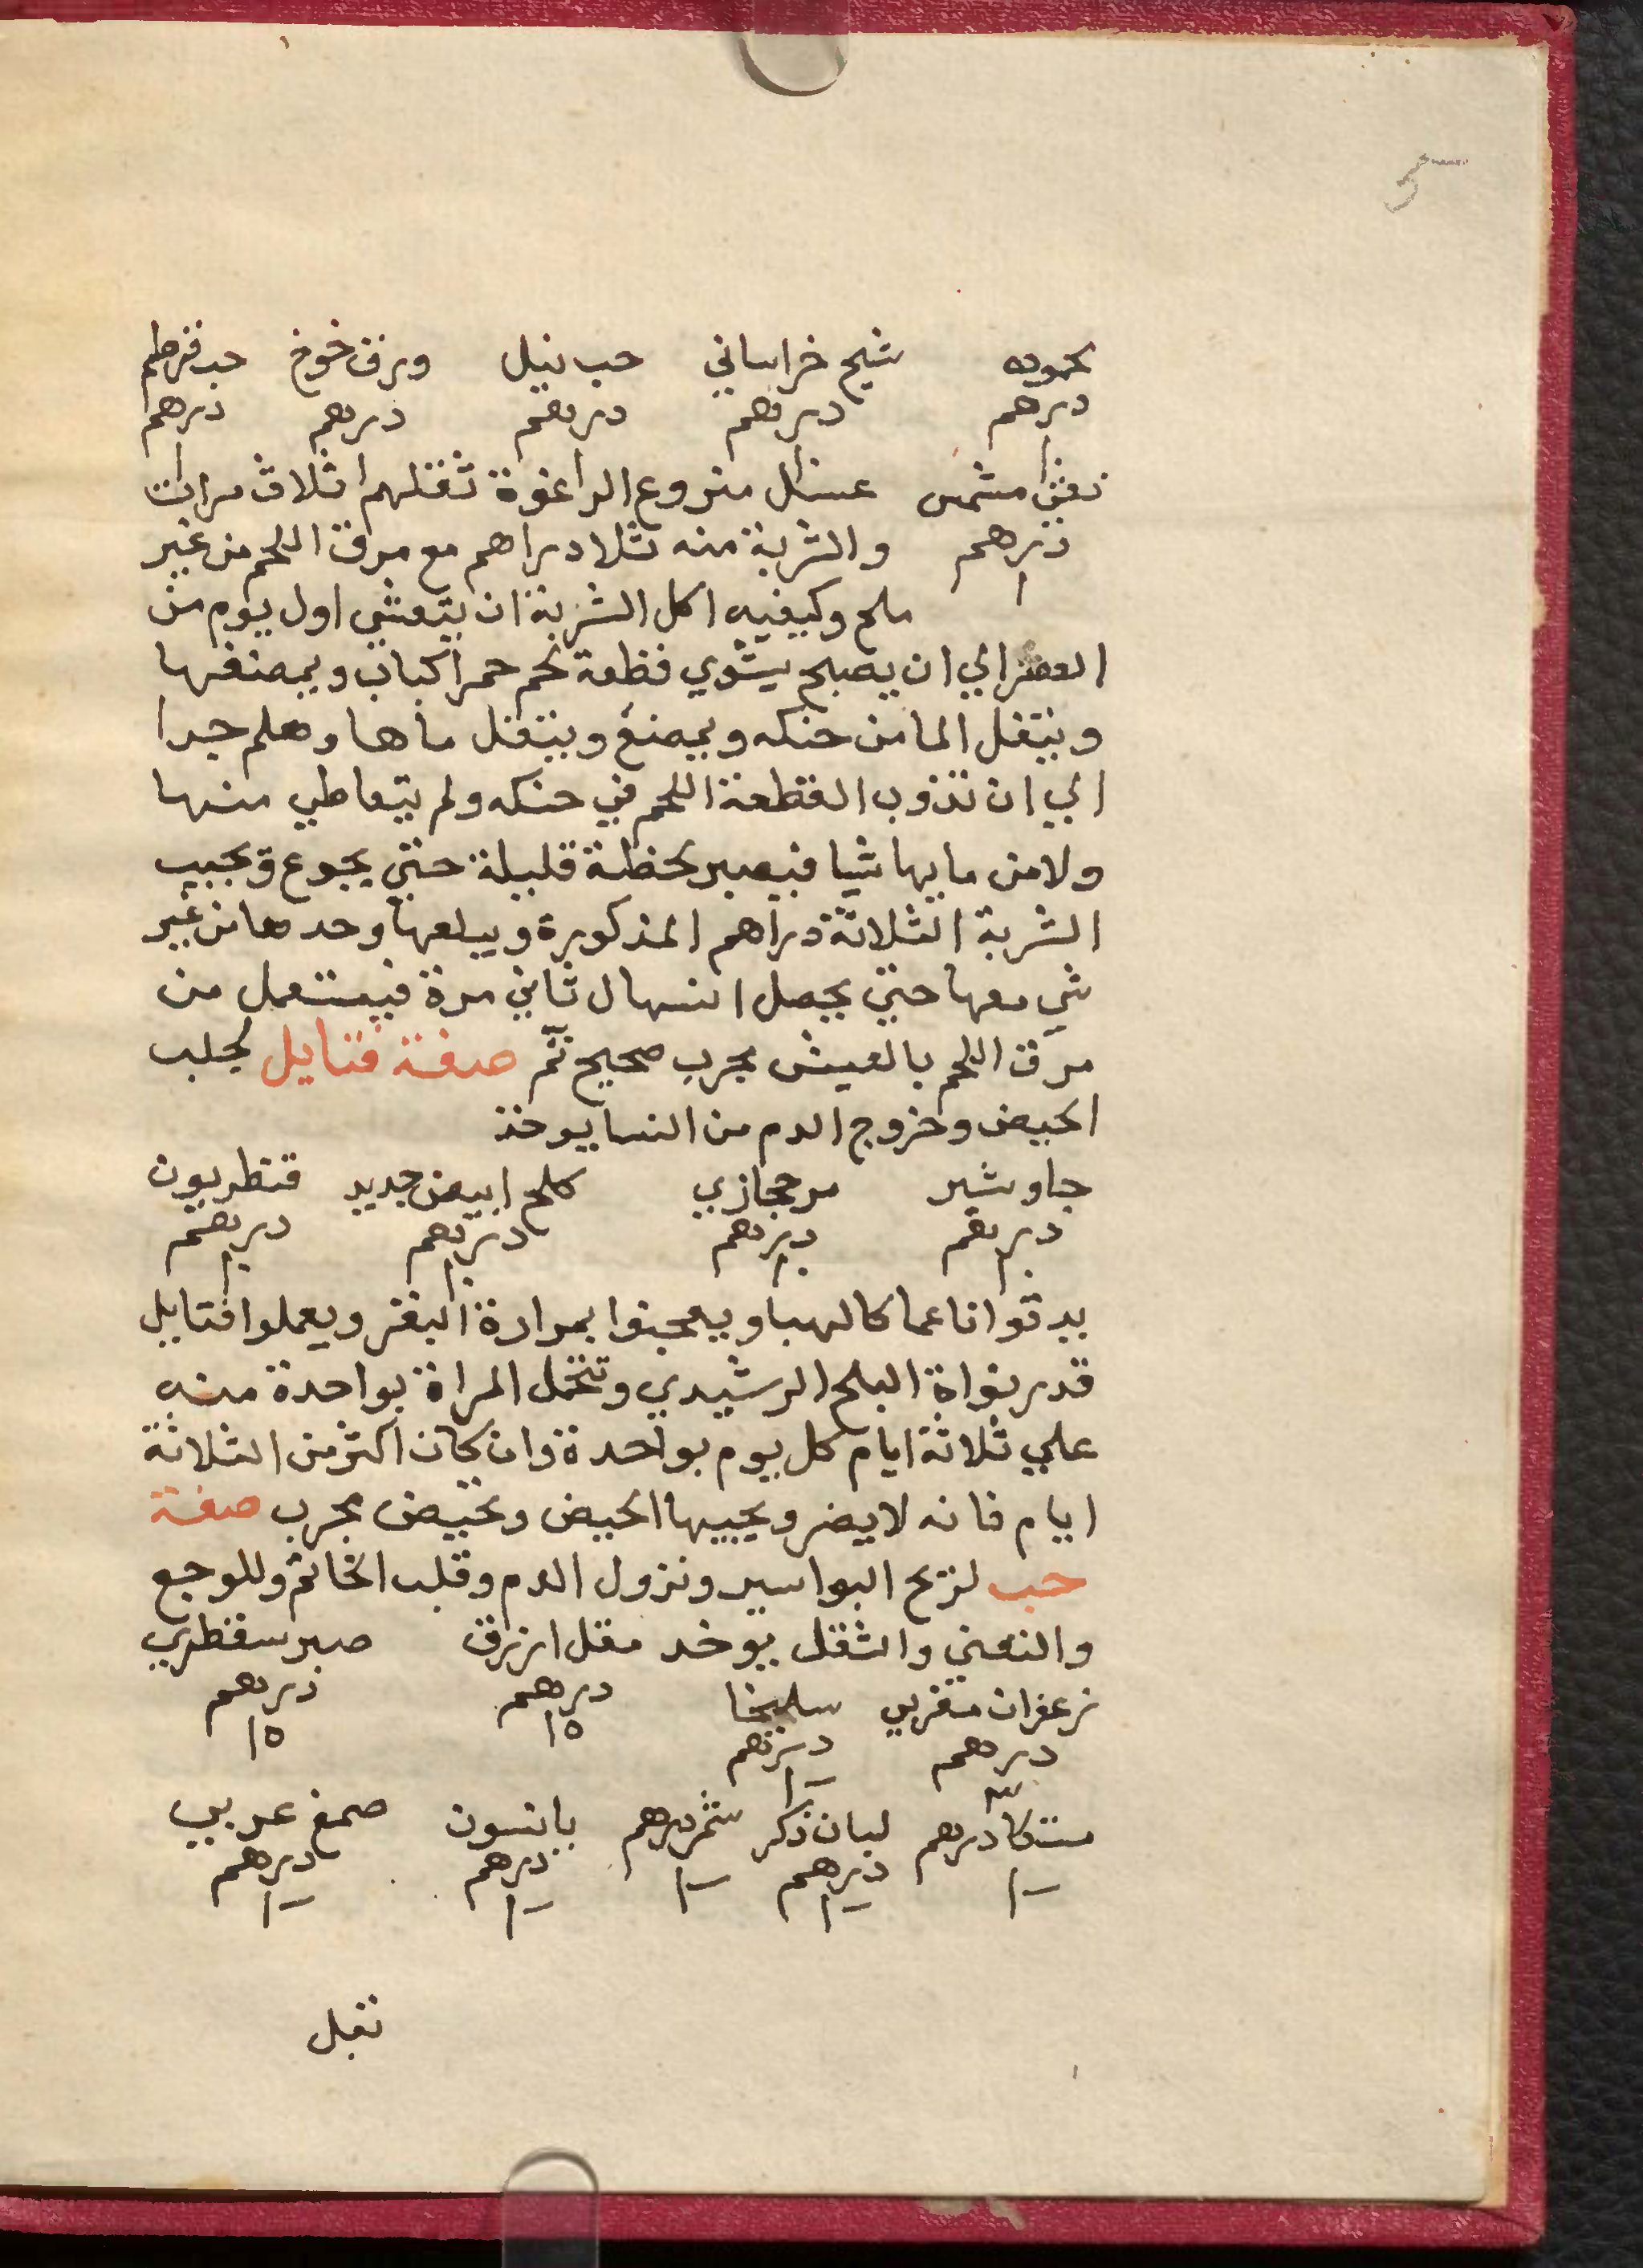 5
محموده شيح خراساني حب نيل ورق خوخ حب قرطم
درهم درهم درهم درهم درهم
١ ١ ١
مشمس عسل منزوع الراغوة ثقلهم ثلاث مرات
درهم والشربة منه ثلا دراهم مع مرق اللحم من غير
١
ملح وكيفيه اكل الشربة ان يتعشي اول يوم من
العصر الي ان يصبح يشوي قطعة لحم حمرا كباب ويمضغها
ويتفل الما من حنكه ويمضغ ويتفل ماها وهلم جرا
الي ان تذوب القطعة اللحم في حنكه ولم يتعاطي منها
ولا من مايها شيا فيصبر لحظة قليلة حتي يجوع ويجيب
الشربة الثلاثة دراهم المذكورة ويبلعها وحدها من غير
شي معها حتي يحصل انسهال ثاني مرة فيستعمل من
مرق اللحم بالعيش مجرب صحيح تم صفة فتايل لجلب
الحيض وخروج الدم من النسا يوخذ
جاوشير مر حجازي كلح ابيض جديد قنطريون
درهم درهم درهم درهم
١ ١ ١ ١
يدقوا ناعما كالهبا ويعجنوا بمرارة البقر ويعملوا فتايل
قدر نواة البلح الرشيدي وتتحمل المراة بواحدة منه
علي ثلاثة ايام كل يوم بواحدة وان كان اكثر من الثلاثة
ايام فانه لا يضر ويجيبها الحيض وتحيض مجرب صفة
حب لزيح البواسير ونزول الدم وقلب الخاتم وللوجع
والتعني والثقل يوخد مقل ازرق صبر سقطري
درهم درهم
١٥ ١٥
زعفران مغربي سليخا
درهم درهم
٣
مستكا درهم لبان ذكر شمر درهم يانسون صمغ عربي
درهم درهم درهم
تقبل